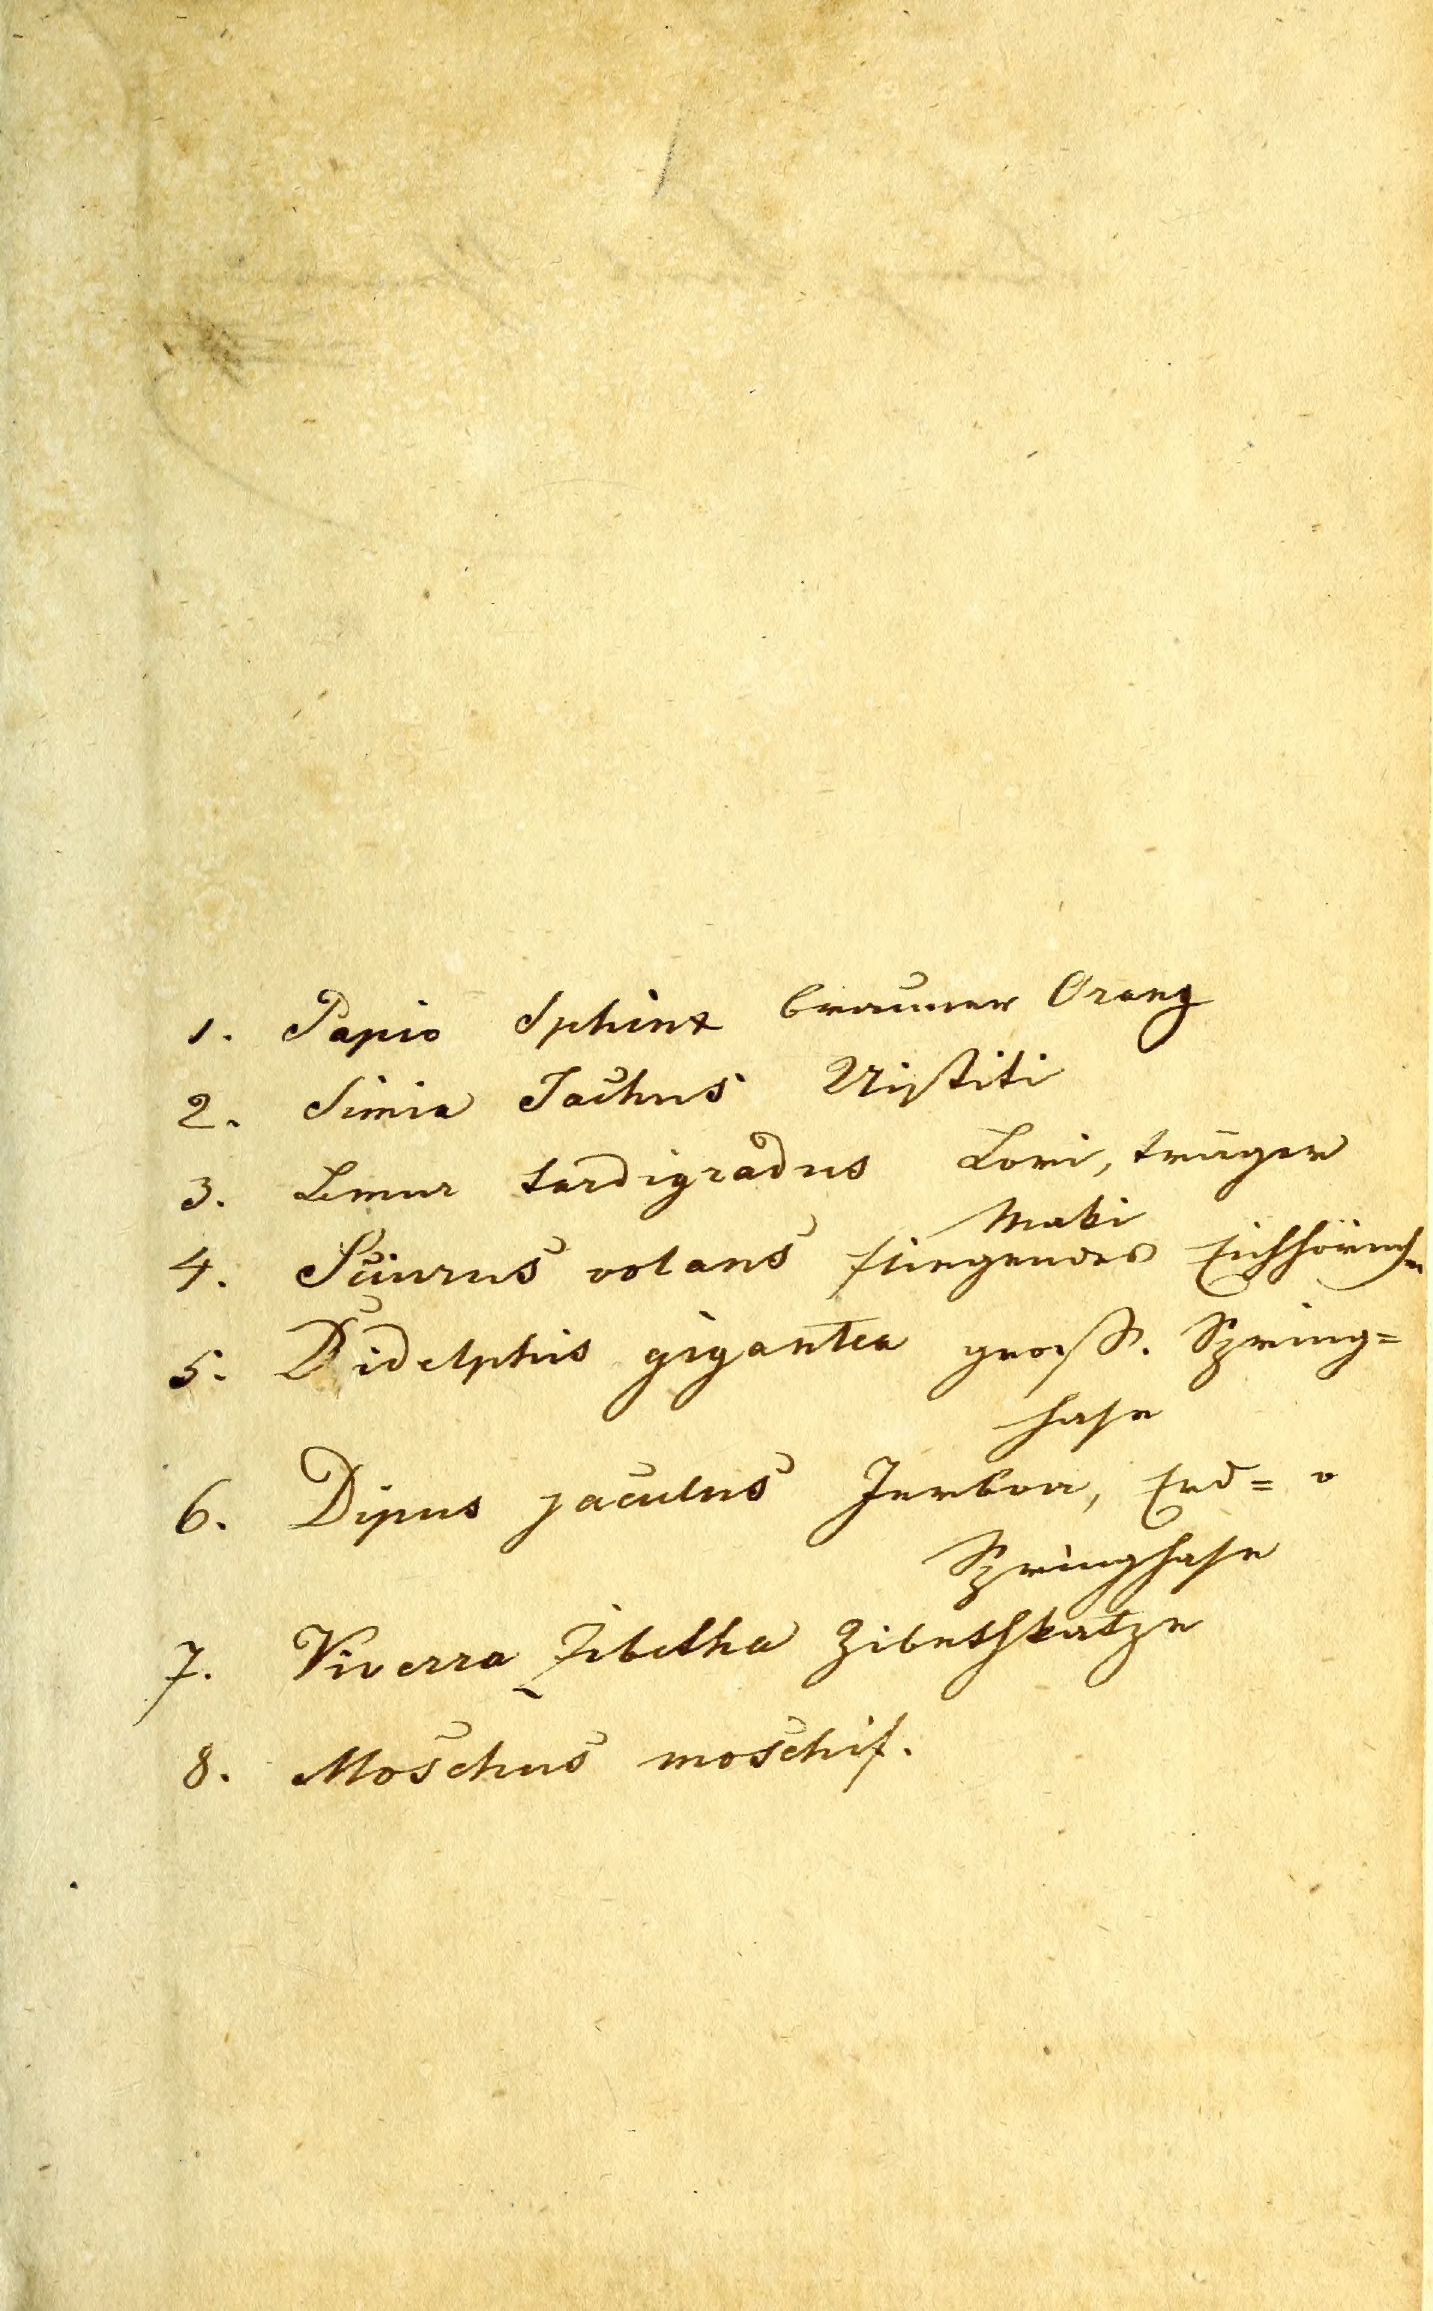 1. Papio Sphinx brauner Orang
2. Simia Jachus Uistiti
3. Lemur tardigradus Lori, träger
Maki
4. Sciurus volans fliegendes Eichhörnchen
5. Didelphis gigantea groß. Spring=
hase
6. Dipus jaculus Jerboa, Erd= o
Springhase
7. Viverra Zibetha Zibethkatze
8. Moschus moschif.